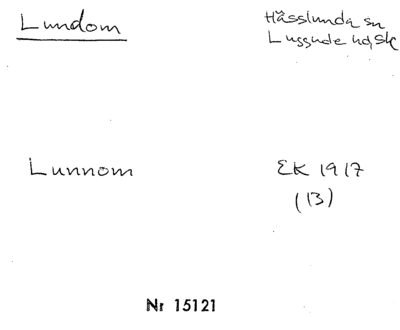 Lundom
Hässlunda sn
Luggude hd, Sk
Lunnom
EK 1917
(13)
Nr 15121